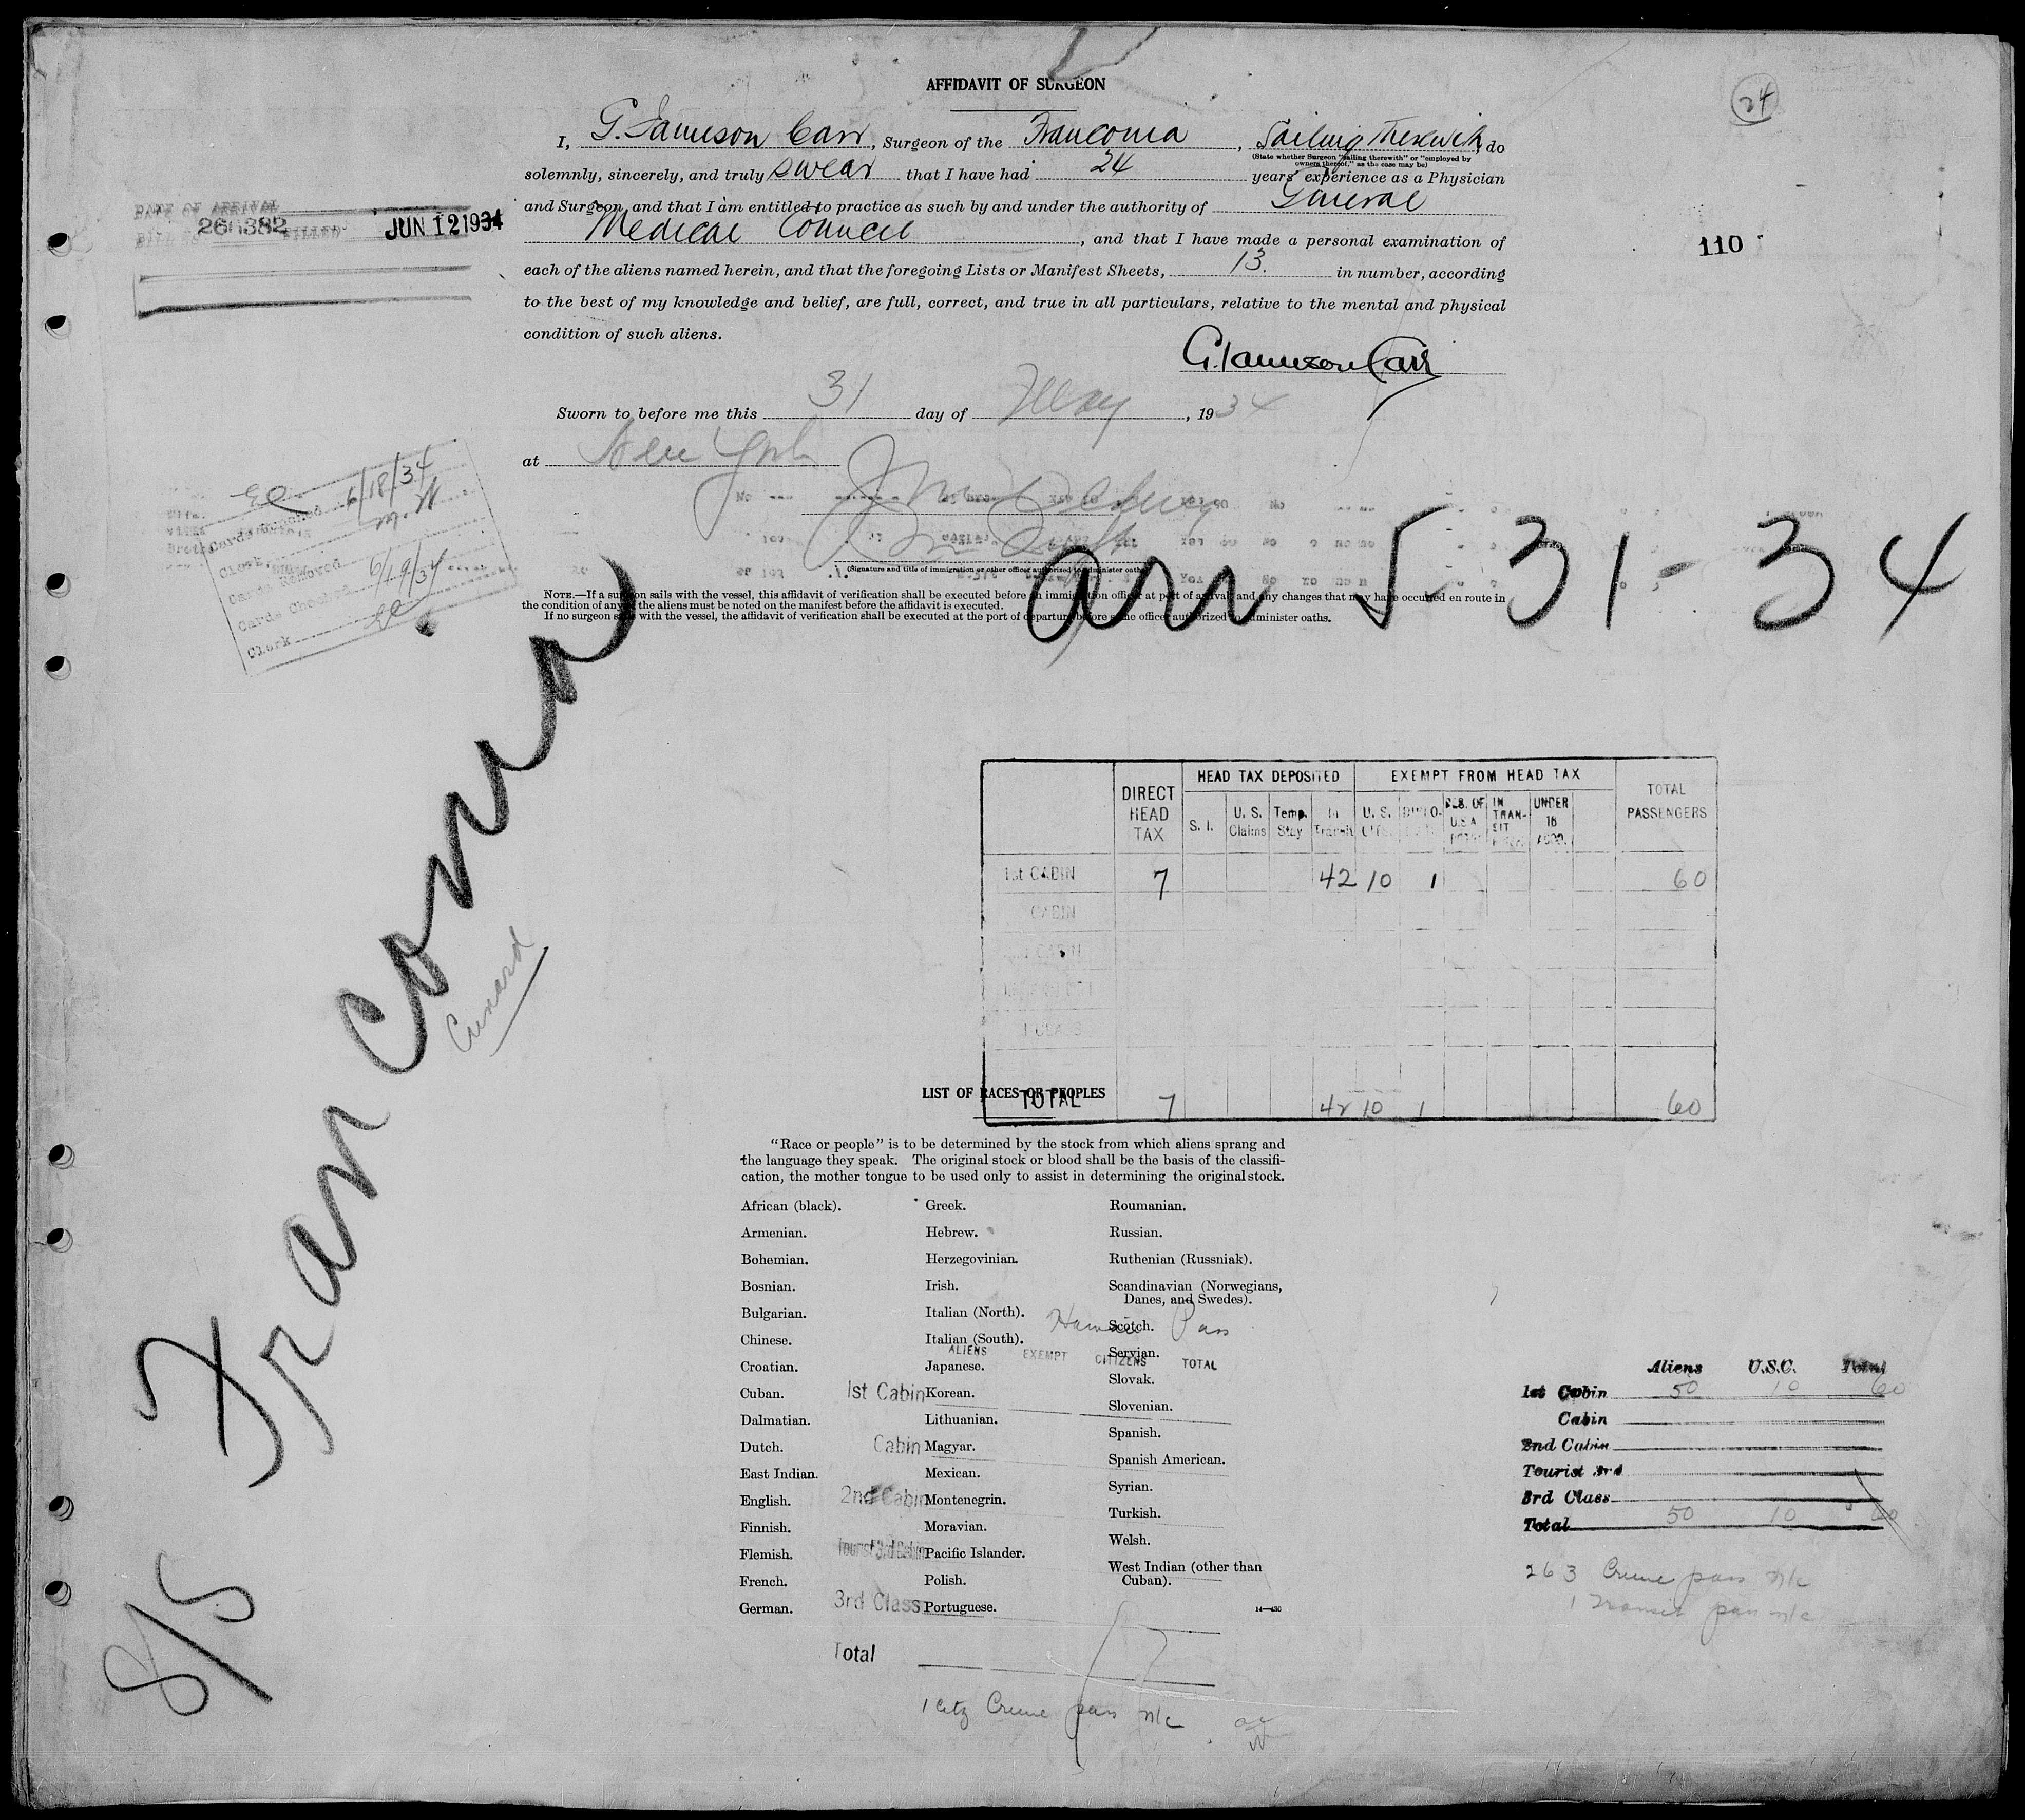 AFFIDAVIT OF SURGEON
24
I, G. Jameson Carr, Surgeon of the Franconia, Sailing therewith, do
(State whether Surgeon "sailing therewith" or "employed by
owners thereof," as the case may be)
solemnly, sincerely, and truly swear that I have had 24 years' experience as a Physician
and Surgeon, and that I am entitled to practice as such by and under the authority of General
Medical Council, and that I have made a personal examination of
each of the aliens named herein, and that the foregoing Lists or Manifest Sheets, 13 in number, according
to the best of my knowledge and belief, are full, correct, and true in all particulars, relative to the mental and physical
condition of such aliens.
G. Jameson Carr
DATE OF ARRIVAL
JUN 12 1934
110
Sworn to before me this 31 day of May, 1934
at New York
(Signature and title of immigration or other officer authorized to administer oaths)
NOTE.—If a surgeon sails with the vessel, this affidavit of verification shall be executed before an immigration officer at port of arrival and any changes that may have occurred en route in
the condition of any of the aliens must be noted on the manifest before the affidavit is executed.
If no surgeon sails with the vessel, the affidavit of verification shall be executed at the port of departure before some officer authorized to administer oaths.
6/18/34
Cards Removed 6/19/34
Cards Checked
Clerk
arr 5-31-34
Franconia
Cunard
8/5
DIRECT HEAD TAX
HEAD TAX DEPOSITED
EXEMPT FROM HEAD TAX
TOTAL PASSENGERS
S. I.
U. S. Claims
Temp. Stay
In Transit
U. S. Cits.
IN TRANSIT
UNDER 16
1st CABIN 7 42 10 1 60
CABIN
TOTAL 7 42 10 1 60
LIST OF RACES OR PEOPLES
"Race or people" is to be determined by the stock from which aliens sprang and
the language they speak. The original stock or blood shall be the basis of the classifi-
cation, the mother tongue to be used only to assist in determining the original stock.
African (black).
Armenian.
Bohemian.
Bosnian.
Bulgarian.
Chinese.
Croatian.
Cuban.
Dalmatian.
Dutch.
East Indian.
English.
Finnish.
Flemish.
French.
German.
Greek.
Hebrew.
Herzegovinian.
Irish.
Italian (North).
Italian (South).
Japanese.
Korean.
Lithuanian.
Magyar.
Mexican.
Montenegrin.
Moravian.
Pacific Islander.
Polish.
Portuguese.
Roumanian.
Russian.
Ruthenian (Russniak).
Scandinavian (Norwegians,
Danes, and Swedes).
Scotch.
Servian.
Slovak.
Slovenian.
Spanish.
Spanish American.
Syrian.
Turkish.
Welsh.
West Indian (other than
Cuban).
14—430
Pass
ALIENS EXEMPT CITIZENS TOTAL
1st Cabin
Cabin
2nd Cabin
Tourist 3rd Cabin
3rd Class
Total
Aliens U.S.C. Total
1st Cabin 50 10 60
Cabin
2nd Cabin
Tourist 3rd
3rd Class
Total 50 10 60
263 Cruise pass n/c
1 Transit pass n/c
1 citz Cruise pass n/c